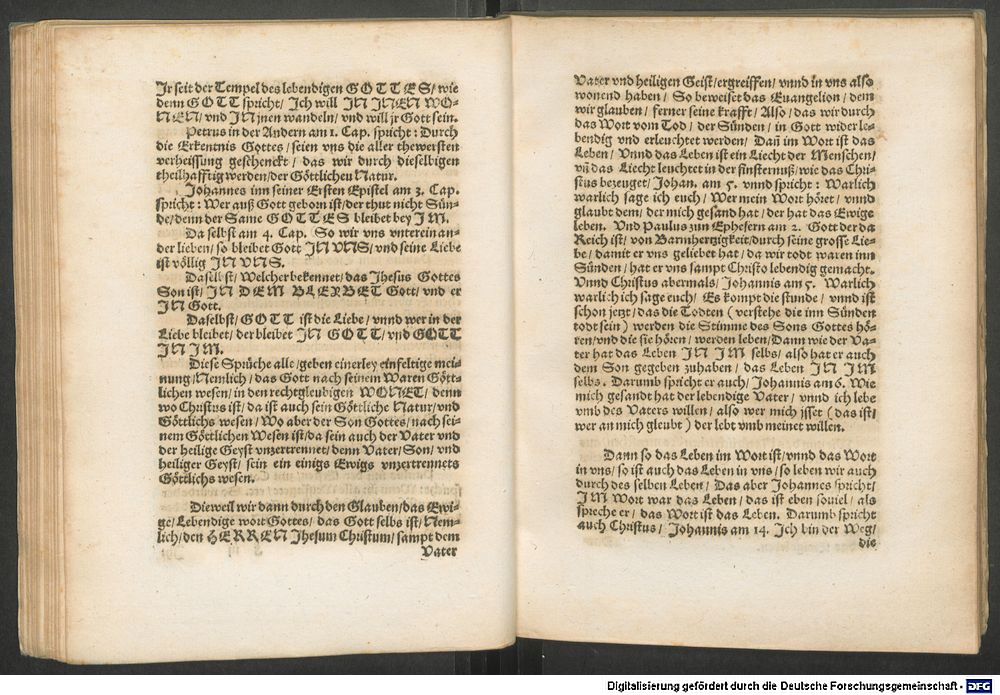 Jr seit der Tempel des lebendigen GOTTES/ wie
denn GOTT spricht/ Ich will IN JNEN WO-
NEN/ vnd IN jnen wandeln/ vnd will jr Gott sein.
Petrus in der Andern am 1. Cap. spricht: Durch
die Erkentnis Gottes/ seien vns die aller thewersten
verheissung geschenckt/ das wir durch dieselbigen
theilhafftig werden/ der Göttlichen Natur.
Johannes inn seiner Ersten Epistel am 3. Cap.
spricht: Wer auß Gott geborn ist/ der thut nicht Sün-
de/ denn der Same GOTTES bleibet bey IM.
Da selbst am 4. Cap. So wir vns vnterein an-
der lieben/ so bleibet Gott IN VNS/ vnd seine Liebe
ist völlig IN VNS.
Daselbst/ Welcher bekennet/ das Jhesus Gottes
Son ist/ IN DEM BLEIBET Gott/ vnd er
IN Gott.
Daselbst/ GOTT ist die Liebe/ vnnd wer in der
Liebe bleibet/ der bleibet IN GOTT/ vnd GOTT
IN IM.
Diese Sprüche alle/ geben einerley einfeltige mei-
nung/ Nemlich/ das Gott nach seinem Waren Gött-
lichen wesen/ in den rechtgleubigen WONET/ denn
wo Christus ist/ da ist auch sein Göttliche Natur/ vnd
Göttlichs wesen/ Wo aber der Son Gottes/ nach sei-
nem Göttlichen Wesen ist/ da sein auch der Vater vnd
der heilige Geyst vnzertrennet/ denn Vater/ Son/ vnd
heiliger Geyst/ sein ein einigs Ewigs vnzertrennets
Göttlichs wesen.
Dieweil wir dann durch den Glauben/ das Ewi-
ge/ Lebendige wort Gottes/ das Gott selbs ist/ Nem-
lich/ den HERREN Jhesum Christum/ sampt dem
Vater
Vater vnd heiligen Geist/ ergreiffen/ vnnd in vns also
wonend haben/ So beweiset das Euangelion/ dem
wir glauben/ ferner seine krafft/ Also/ das wir durch
das Wort vom Tod/ der Sünden/ in Gott widerle-
bendig vnd erleuchtet werden/ Dañ im Wort ist das
Leben/ Vnnd das Leben ist ein Liecht der Menschen/
vñ das Liecht leuchtet in der finsternuß/ wie das Chri-
stus bezeuget/ Johan. am 5. vnnd spricht: Warlich
warlich sage ich euch/ Wer mein Wort höret/ vnnd
glaubt dem/ der mich gesand hat/ der hat das Ewige
leben. Und Paulus zun Ephesern am 2. Gott der da
Reich ist/ von Barmhertzigkeit/ durch seine grosse Lie-
be/ damit er vns geliebet hat/ da wir todt waren inn
Sünden/ hat er vns sampt Christo lebendig gemacht.
Vnnd Christus abermals/ Johannis am 5. Warlich
warlich ich sage euch/ Es kompt die stunde/ vnnd ist
schon jetzt/ das die Todten (verstehe die inn Sünden
todt sein) werden die Stimme des Sons Gottes hö-
ren/ vnd die sie hören/ werden leben/ Dann wie der Va-
ter hat das Leben IN IM selbs/ also hat er auch
dem Son gegeben zuhaben/ das Leben IN IM
selbs. Darumb spricht er auch/ Johannis am 6. Wie
mich gesandt hat der lebendige Vater/ vnnd ich lebe
vmb des Vaters willen/ also wer mich jsset (das ist/
wer an mich gleubt) der lebt vmb meinet willen.
Dann so das Leben im Wort ist/ vnnd das Wort
in vns/ so ist auch das Leben in vns/ so leben wir auch
durch des selben Leben/ Das aber Johannes spricht/
IM Wort war das Leben/ das ist eben souiel/ als
spreche er/ das Wort ist das Leben. Darumb spricht
auch Christus/ Johannis am 14. Ich bin der Weg/
die
Digitalisierung gefördert durch die Deutsche Forschungsgemeinschaft - DFG